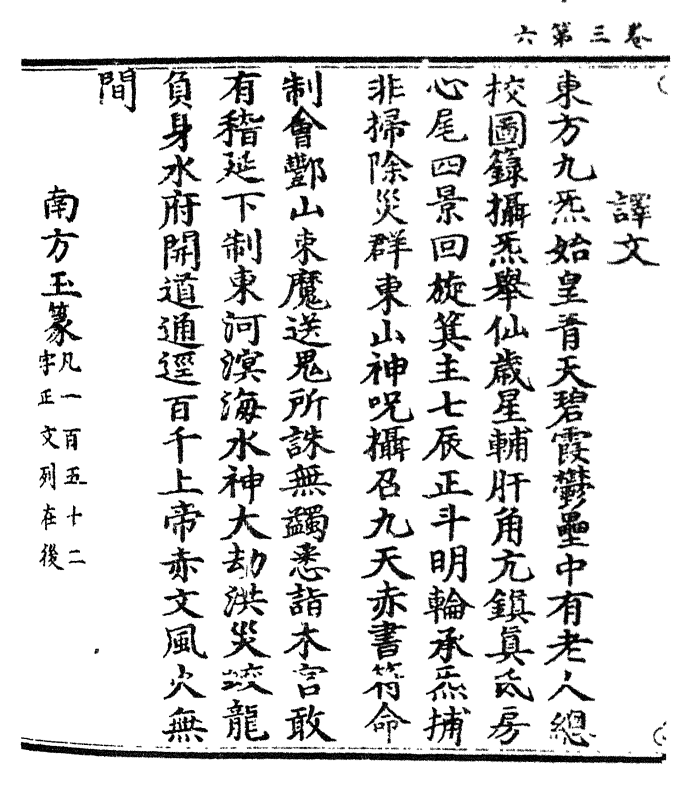 卷三第六
譯文
東方九炁始皇青天碧霞欝壘中有老人總
校圖籙攝炁舉仙歲星輔肝角亢鎮真氐房
心尾四景回旋箕主七辰正斗明輪承炁捕
非掃除災群東山神呪攝召九天赤書符命
制會酆山束魔送鬼所誅無蠲悉詣木宮敢
有稽延下制東河溟海水神大劫洪災蛟龍
負身水府開道通逕百千上帝赤文風火無
間
南方玉篆凡一百五十二
字正文列在後